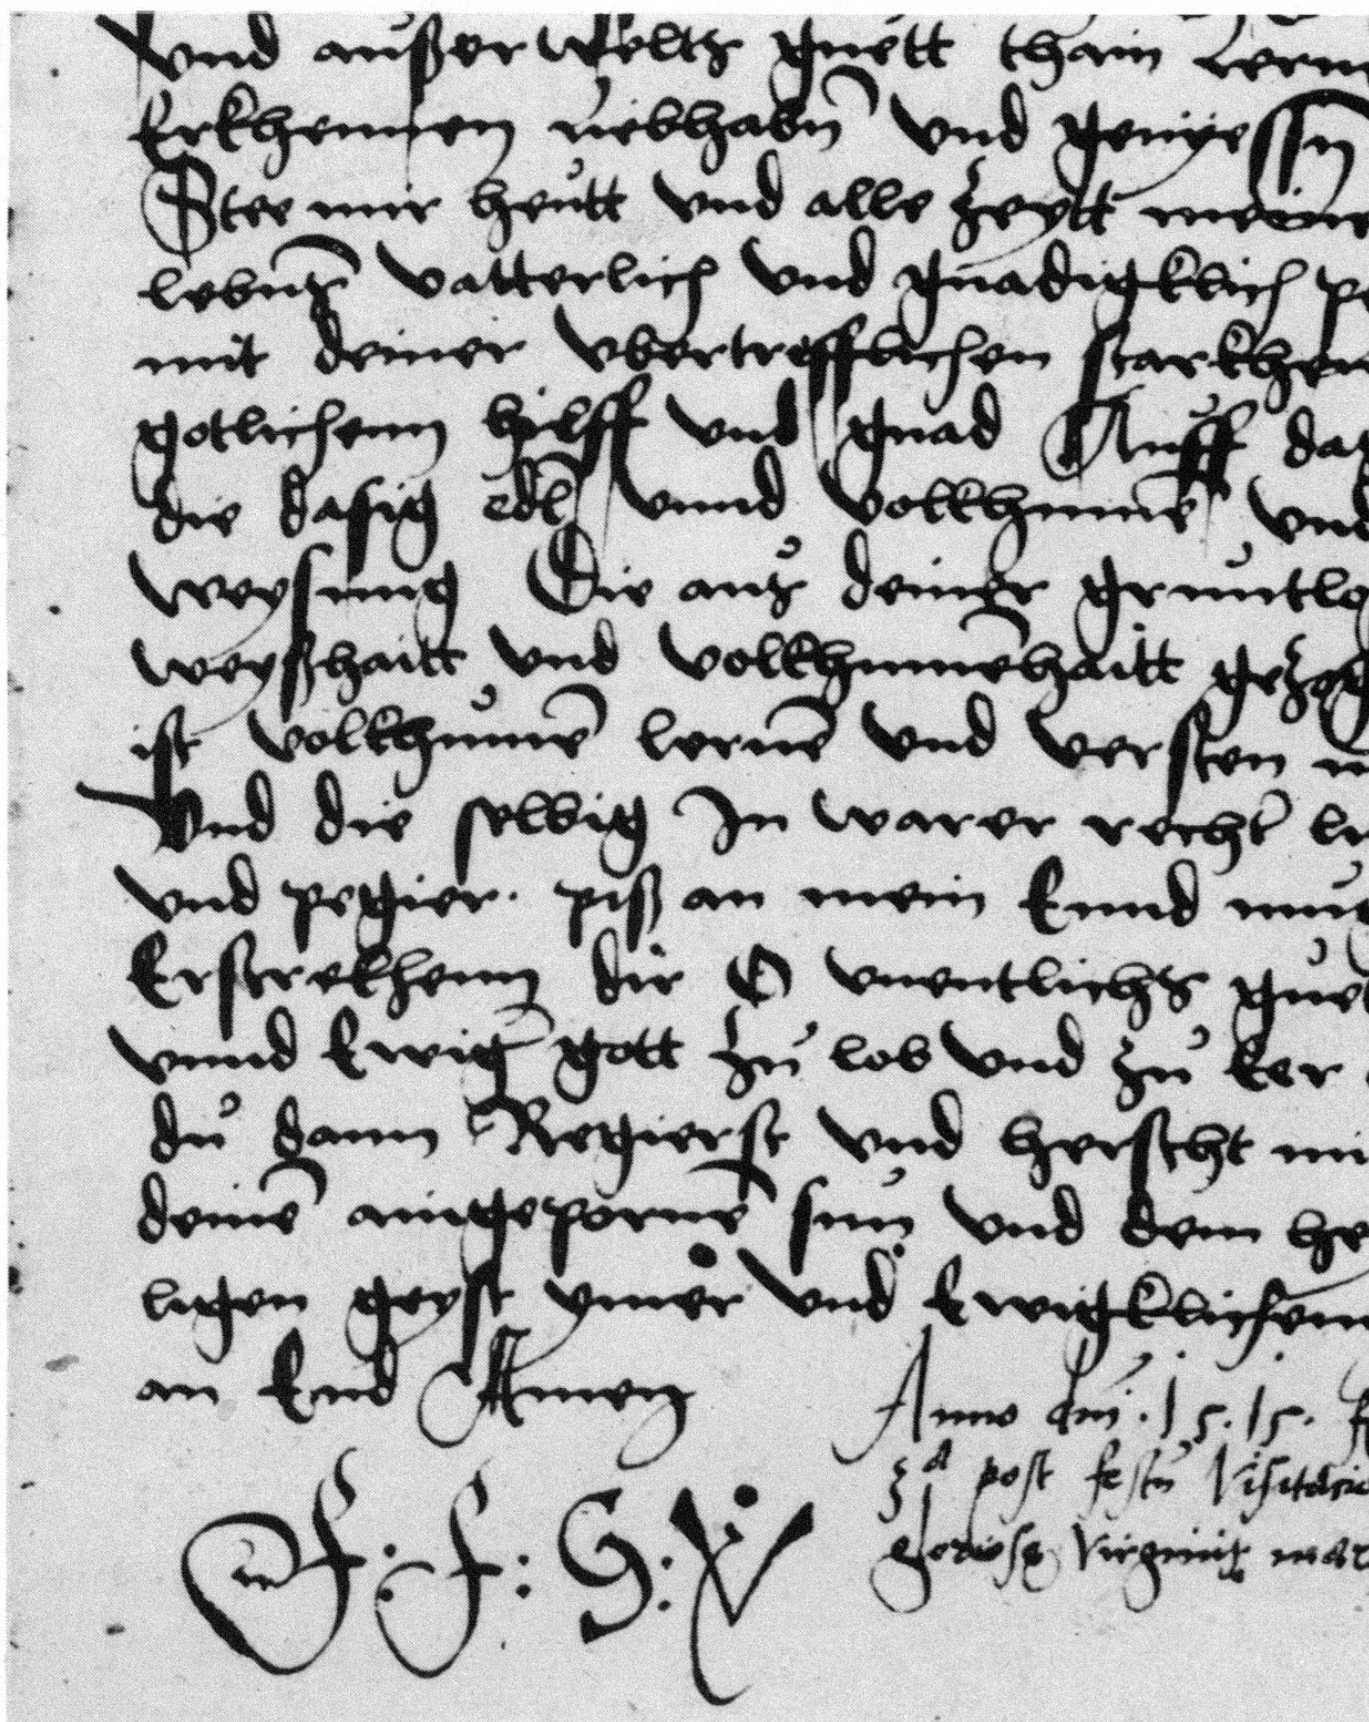 Vnd außer Weltz guett thain lerne
Erkhennen liebhabn vnd genyessn
Stee mir heutt vnd alle zeytt meine
lebntz vatterlich vnd gnadigklich p
mit deiner vbertrefflichen starkhen
gotlichenn hilff vnd gnad Auff daz
die dasig edl vnnd volkhumē vnd
weysung Die auz deiner gruntlo
weyßhaitt vnd volkhumēhaitt gezog
ist volkhumē lernē vnd versten m
Vnd die selbig In warer recht li
vnd pegier. piß an mein Ennd mu
Erstrekhenn dir O vnentlichz guet
vnnd Ewig gott zu lob vnd zu Eer
du dann Regierst vnd herscht mi
deinē aingepornē sun vnd dem he
ligen geyst ymer vnd Ewigklichenn
an End Amen
Anno dni .15.15. f
3a post festū Visitacio
gloriose virginis mar
F:F:S:V